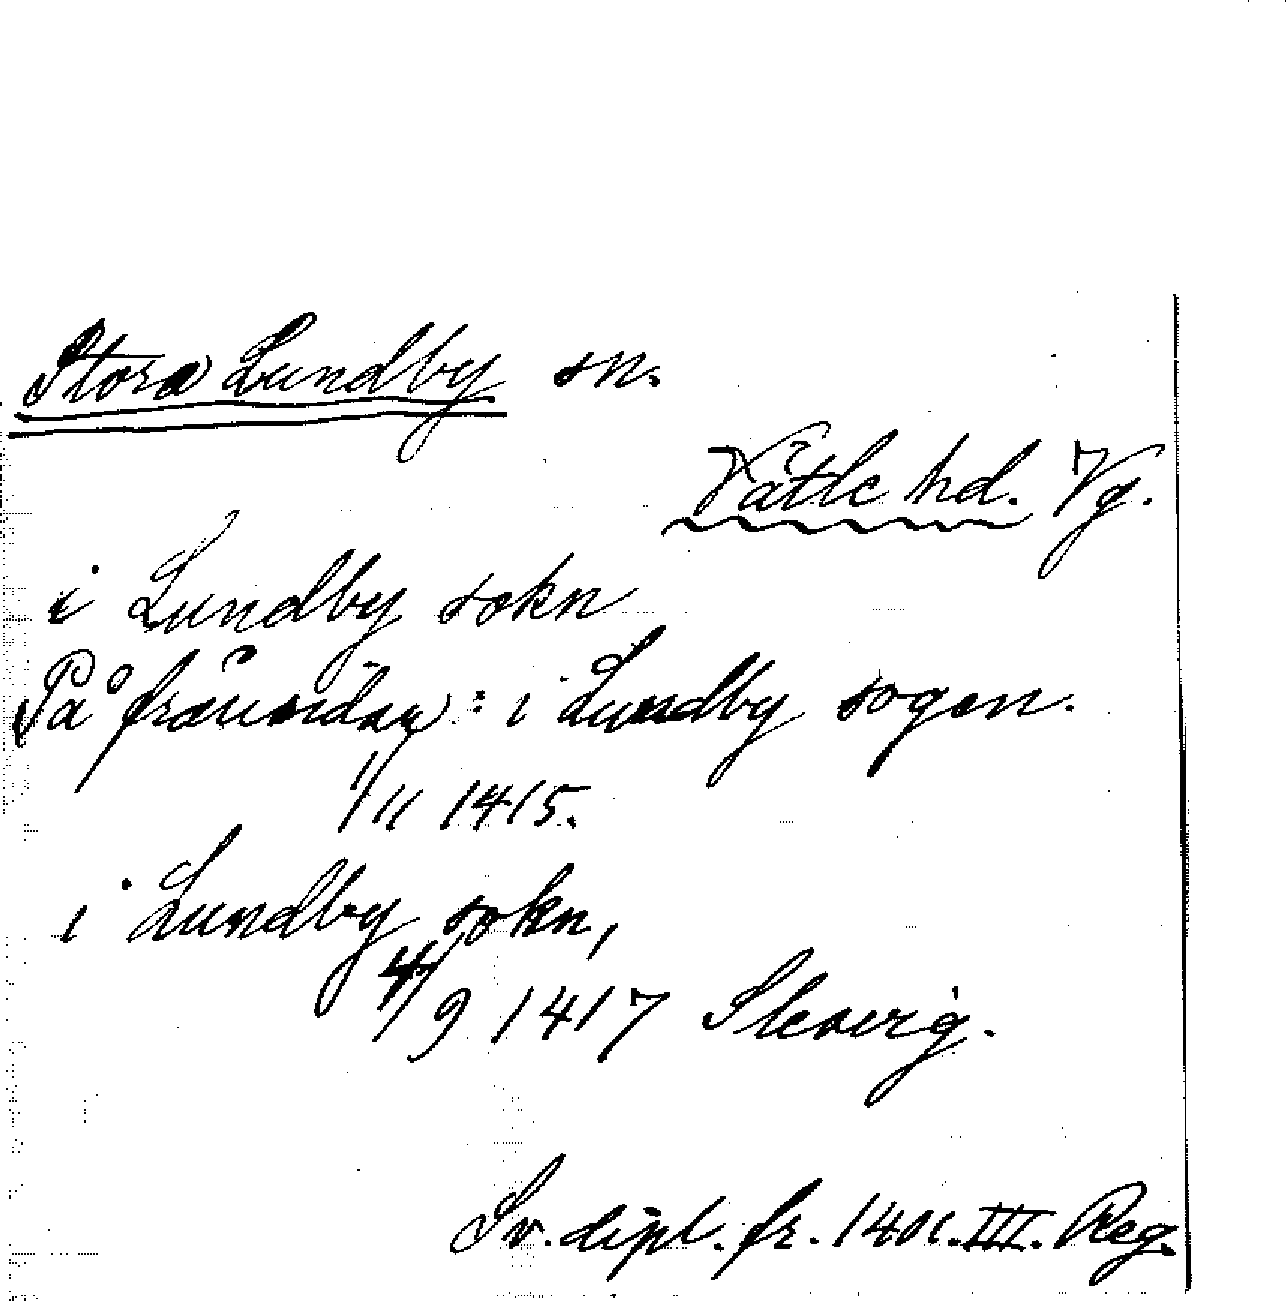 Stora Lundby sn.
Vätle hd. Vg.
i Lundby sokn
På frånsidan: i Lundby sogen.
1/11 1415.
i Lundby sokn,
4/9 1417
Sv. dipl. fr. 1401. III. Reg.